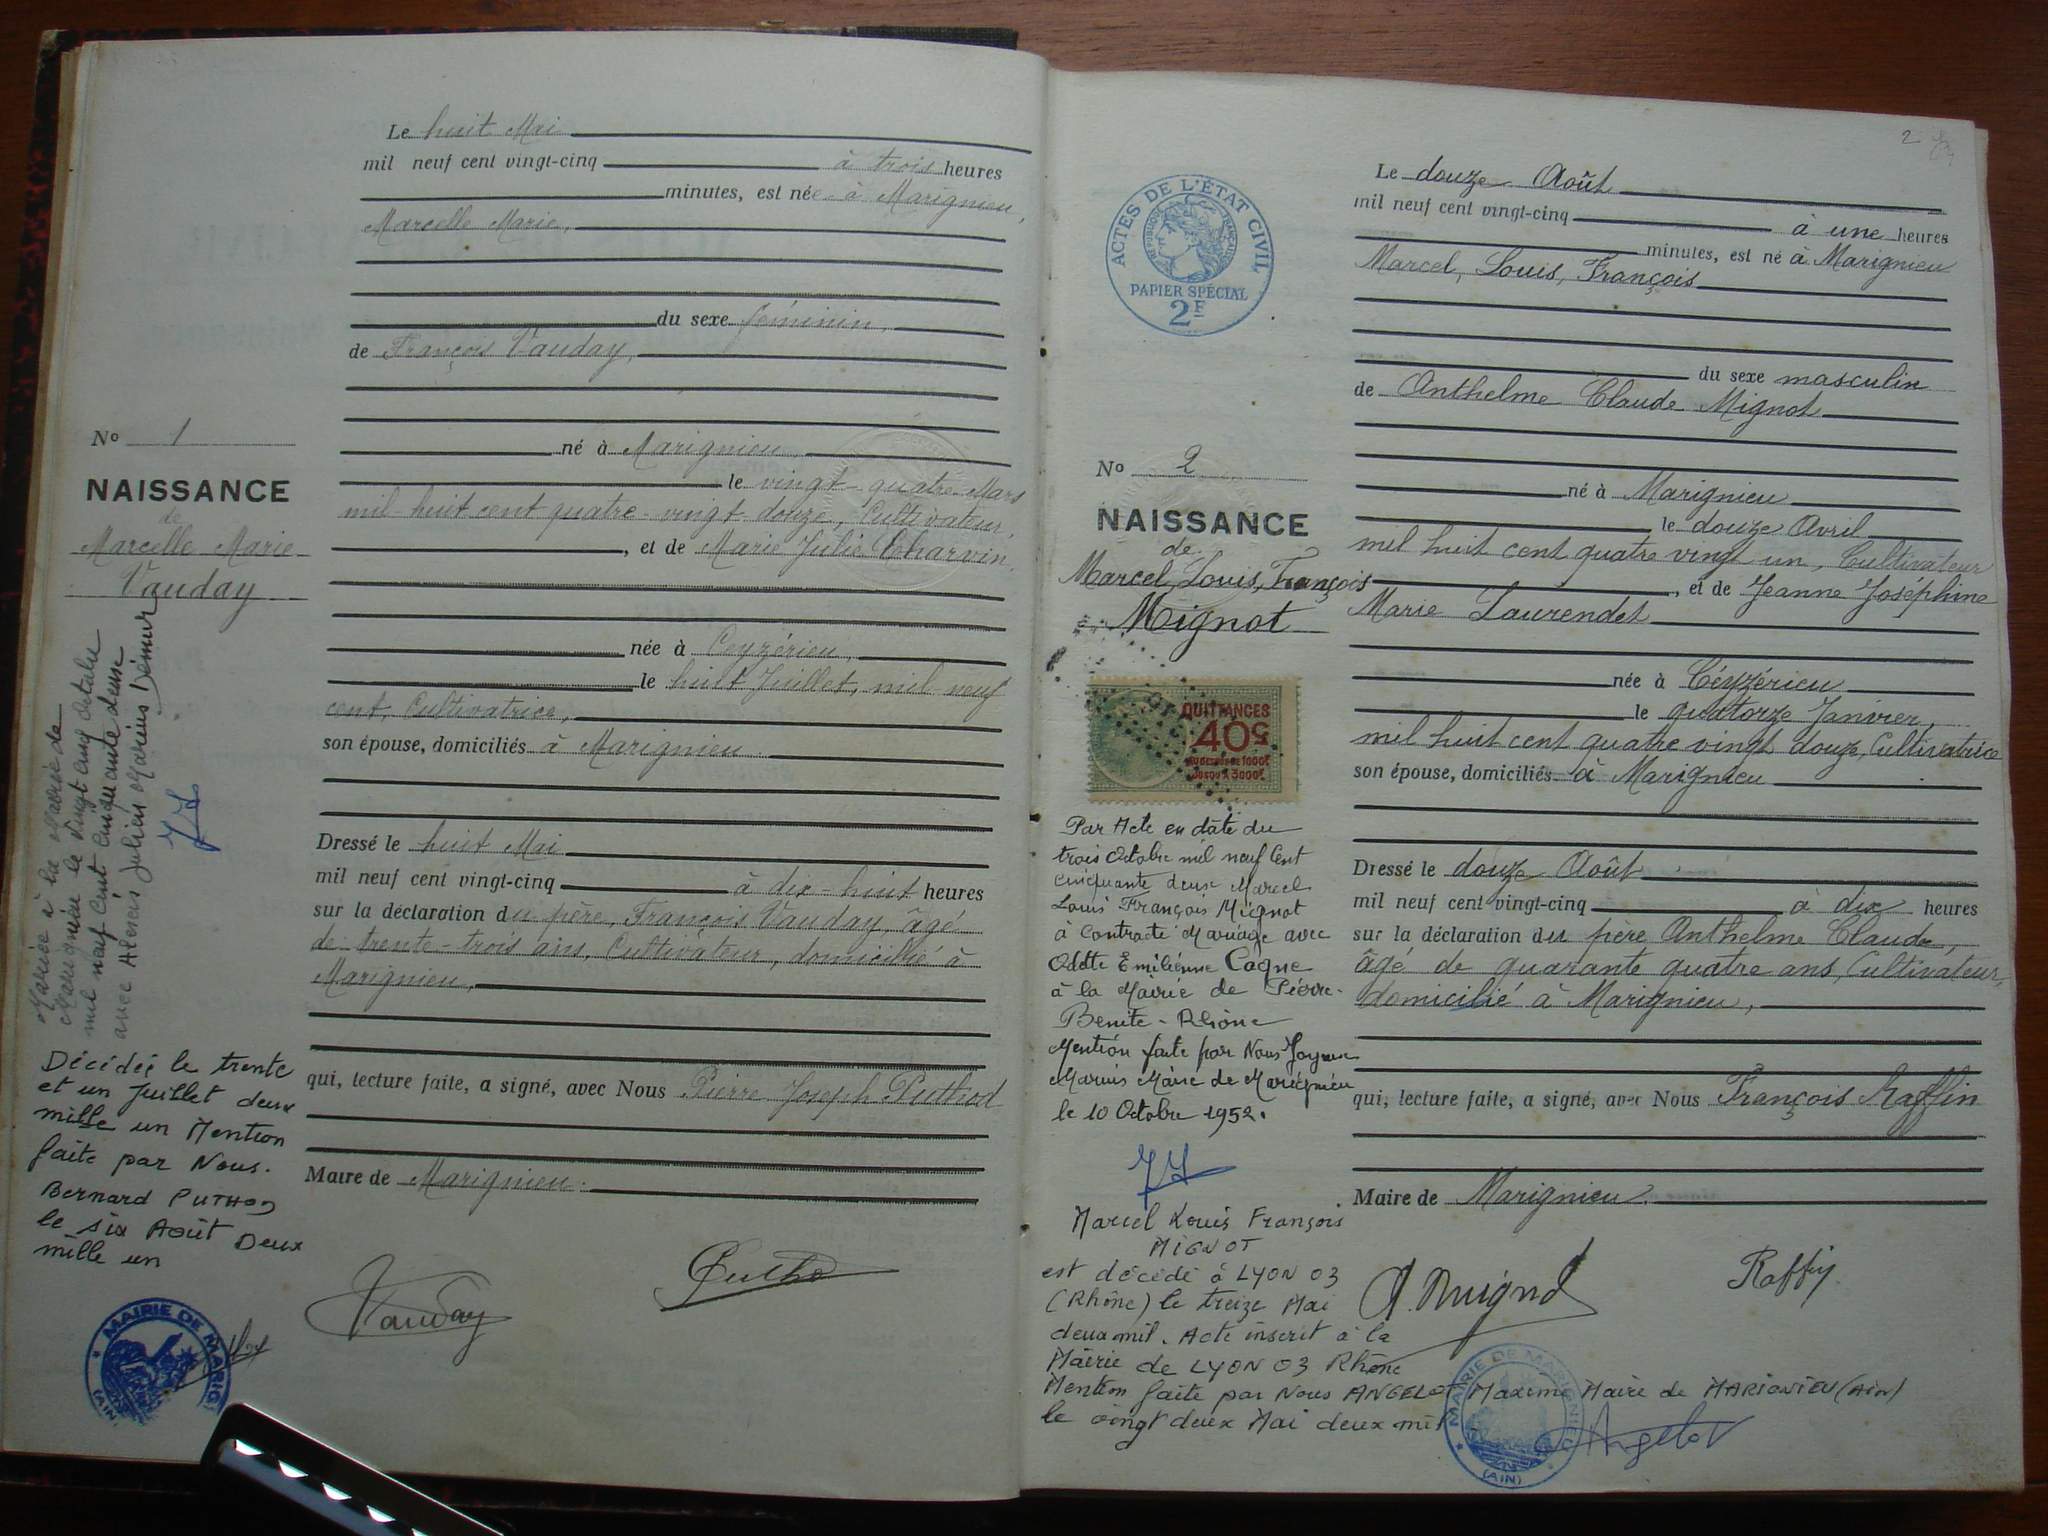 Le huit Mai
mil neuf cent vingt-cinq à trois heures
minutes, est née à Marignieu,
Marcelle Marie,
du sexe féminin,
de François Vauday,
né à Marignieu,
le vingt-quatre Mars
mil huit cent quatre-vingt douze, Cultivateur,
, et de Marie Julie Charvin,
née à Ceyzérieu,
le huit Juillet, mil neuf
cent, Cultivatrice,
son épouse, domiciliés à Marignieu
Dressé le huit Mai
mil neuf cent vingt-cinq à dix-huit heures
sur la déclaration du père, François Vauday, âgé
de trente-trois ans, Cultivateur, domicilié à
Marignieu,
qui, lecture faite, a signé, avec Nous Pierre Joseph Puthod
Maire de Marignieu.
Vauday
Putho
No 1
NAISSANCE
de
Marcelle Marie
Vauday
Mariée à la Mairie de
Marignieu le vingt cinq Octobre
mil neuf cent cinquante deux
avec Alexis Julien Marius Démur
JJ
Décédée le trente
et un Juillet deux
mille un Mention
faite par Nous.
Bernard PUTHOD
le six Août Deux
mille un
MAIRIE DE MARIG
(AIN)
2
ACTES DE L'ÉTAT CIVIL
RÉPUBLIQUE FRANÇAISE
PAPIER SPÉCIAL
2F
No 2
NAISSANCE
de
Marcel, Louis, François
Mignot
QUITTANCES
40c
AU DESSUS DE 1000F
JUSQU'A 3000F
Par Acte en date du
trois Octobre mil neuf Cent
cinquante deux Marcel
Louis François Mignot
à Contracté Mariage avec
Odette Emilienne Cagne
à la Mairie de Pierre-
Benite - Rhône
Mention faite par Nous Joyeux
Marius Maire de Marignieu
le 10 Octobre 1952.
JJ
Marcel Louis François
MIGNOT
est décédé à LYON 03
(Rhône) le treize Mai
deux mil. Acte inscrit à la
Mairie de LYON 03 Rhône
Mention faite par Nous ANGELOT Maxime Maire de MARIGNIEU (Ain)
le vingt deux Mai deux mil
Le douze Août
mil neuf cent vingt-cinq à une heures
minutes, est né à Marignieu
Marcel, Louis, François
du sexe masculin
de Anthelme Claude Mignot
né à Marignieu
le douze Avril
mil huit cent quatre vingt un, Cultivateur
, et de Jeanne Joséphine
Marie Laurendet
née à Céyzérieu
le quatorze Janvier,
mil huit cent quatre vingt douze, Cultivatrice
son épouse, domiciliés à Marignieu
Dressé le douze Août
mil neuf cent vingt-cinq à dix heures
sur la déclaration du père Anthelme Claude,
âgé de quarante quatre ans, Cultivateur,
domicilié à Marignieu,
qui, lecture faite, a signé, avec Nous François Raffin
Maire de Marignieu.
A. Mignot
Raffin
MAIRIE DE MARIGNIEU
(AIN)
Angelot